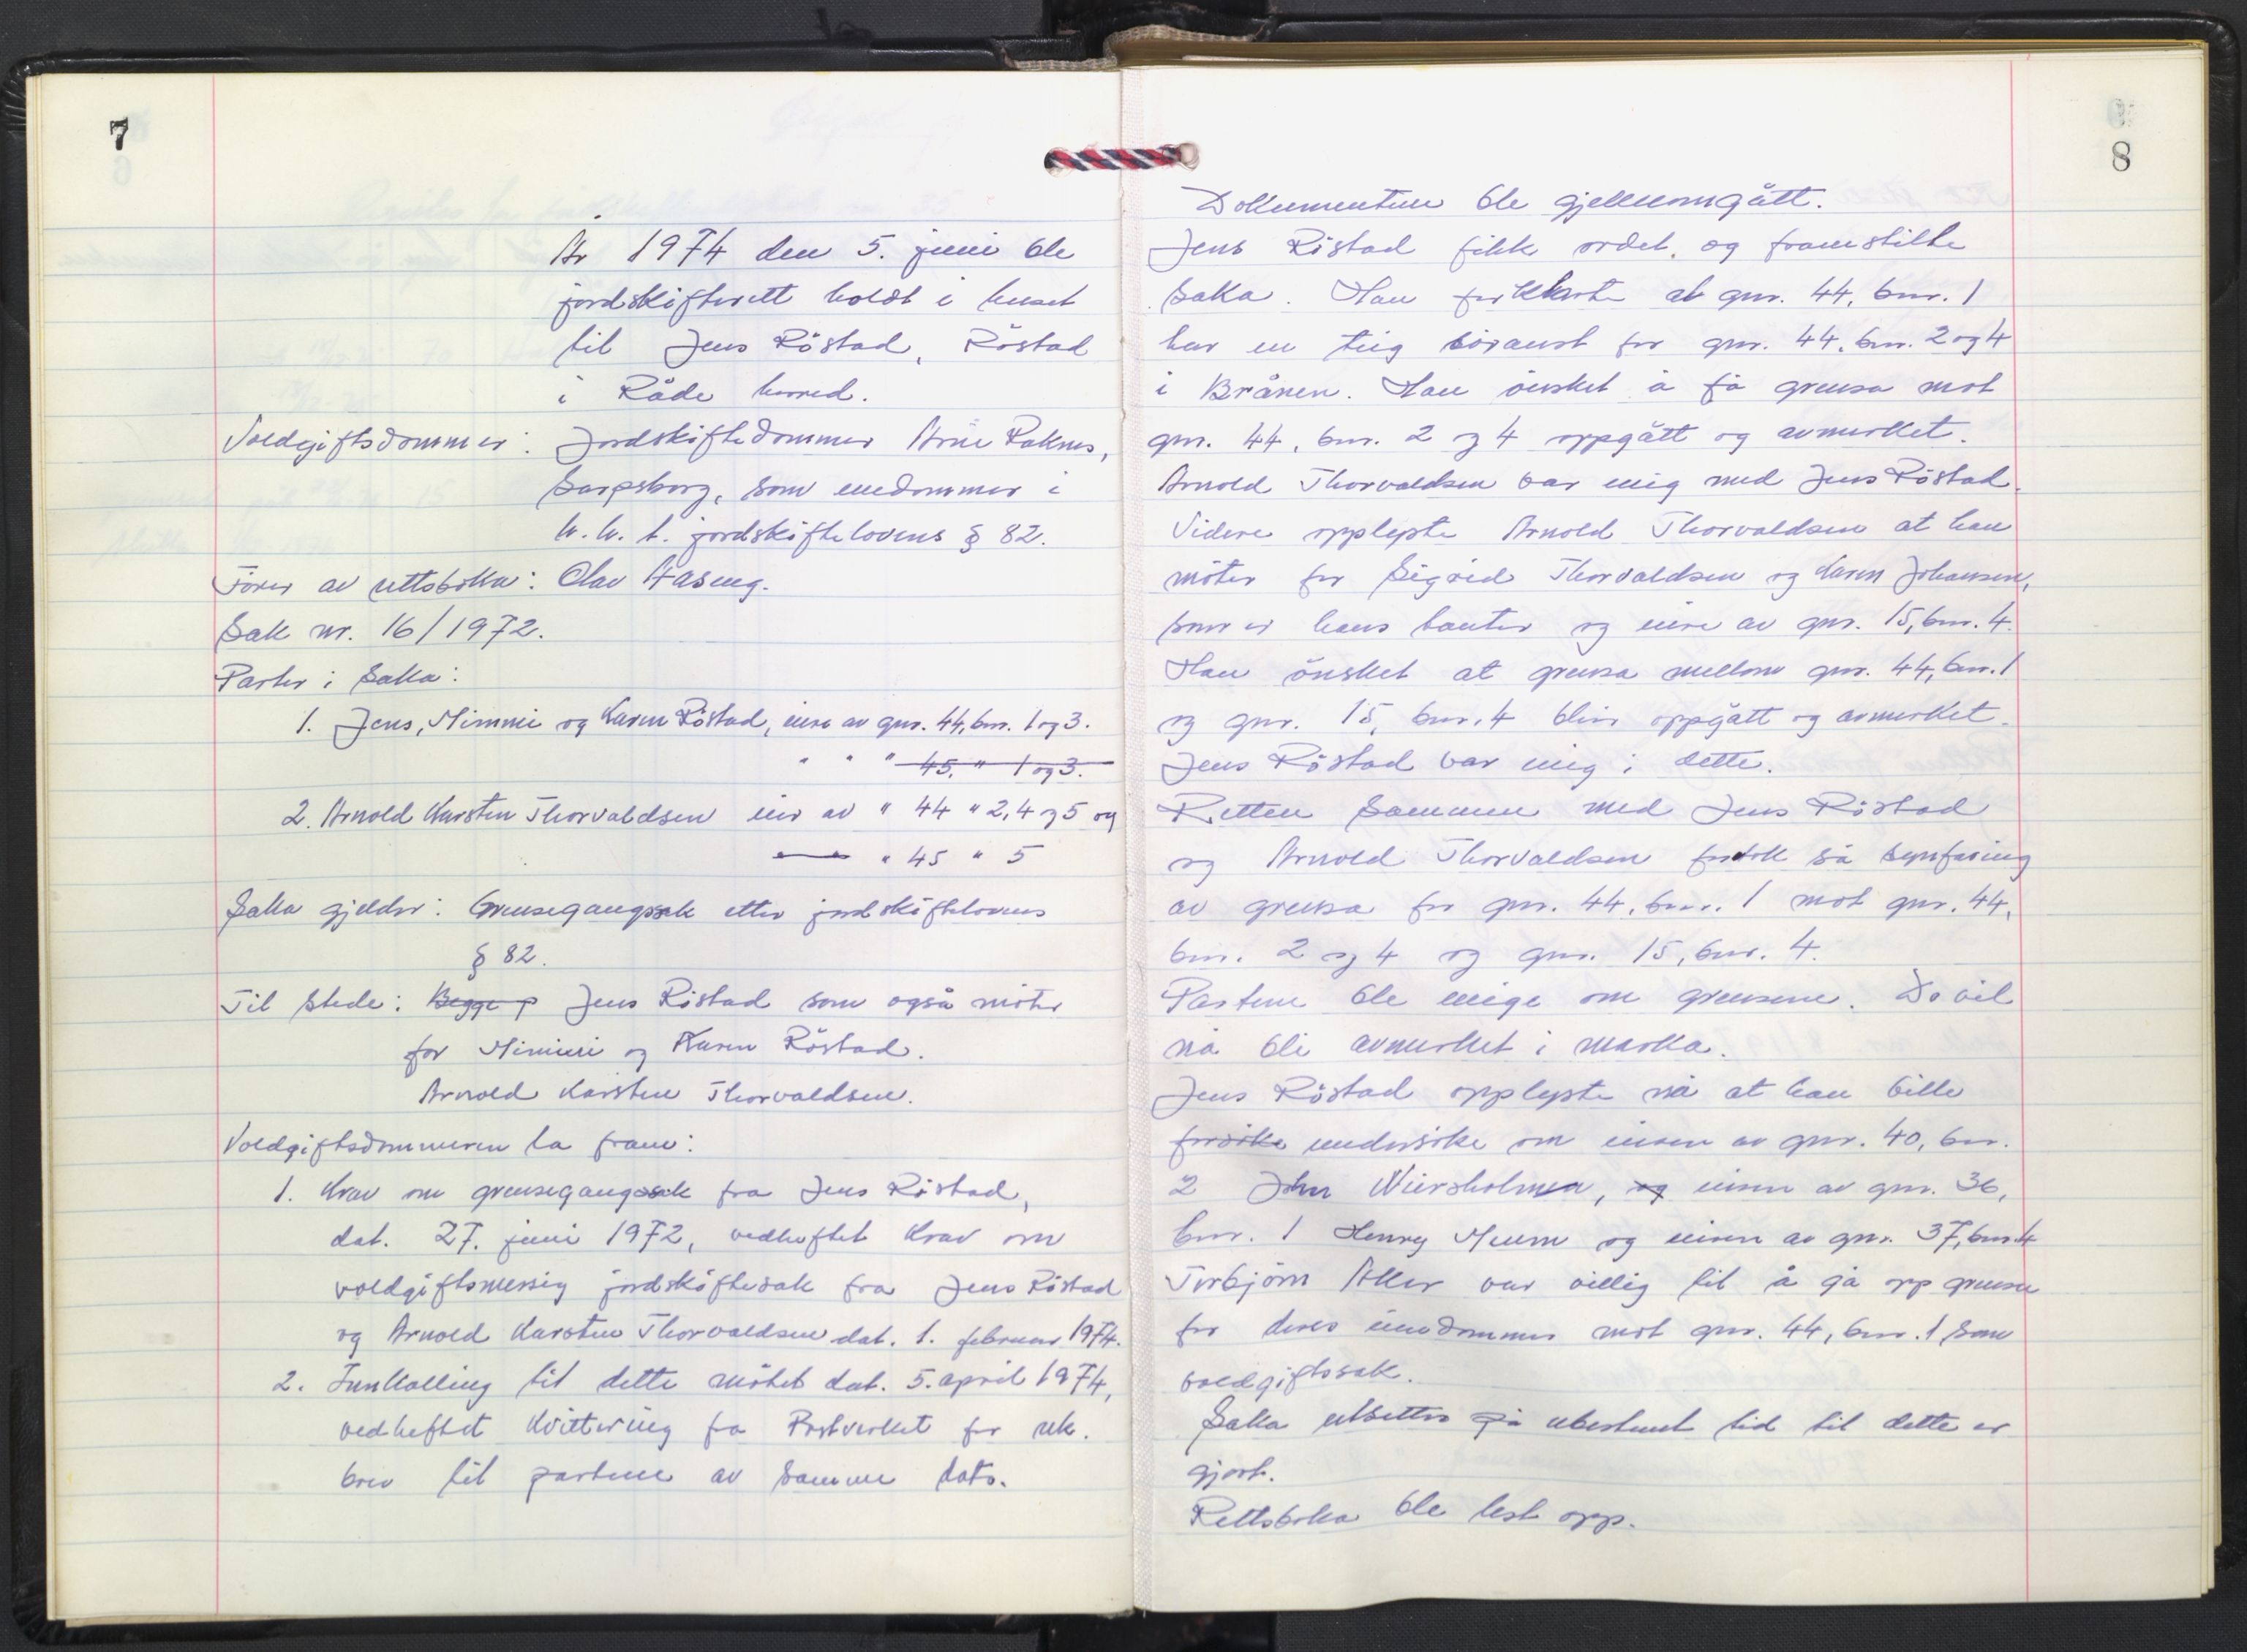 7
År 1974 den 5. juni ble
jordskifterett holdt i huset
til Jens Röstad, Röstad
i Råde herred.
Voldgiftsdommer: Jordskiftedommer Arne Raknes,
Sarpsborg, som enedommer i
h. h. t. jordskiftelovens § 82.
Förer av rettsboka: Olav Haseng.
Sak nr. 16/1972.
Parter i saka:
1. Jens, Mimmi og Karen Röstad, eiere av gnr. 44, bnr. 1 og 3.
" " " 45. " 1 og 3.
2. Arnold Karsten Thorvaldsen eier av " 44 " 2, 4 og 5 og
" 45 " 5
Saka gjelder: Grensegangssak etter jordskiftelovens
§ 82.
Til stede: Begge p Jens Röstad som også möter
for Mimmi og Karen Röstad.
Arnold Karsten Thorvaldsen.
Voldgiftsdommeren la fram:
1. Krav om grensegangssak fra Jens Röstad,
dat. 27. juni 1972, vedheftet krav om
voldgiftsmessig jordskiftesak fra Jens Röstad
og Arnold Karsten Thorvaldsen dat. 1. februar 1974.
2. Innkalling til dette mötet dat. 5. april 1974,
vedheftet kvittering fra Postverket for rek.
brev til partene av samme dato.
8
Dokumentene ble gjennomgått.
Jens Röstad fikk ordet, og framstilte
saka. Han forklarte at gnr. 44, bnr. 1
har en teig söraust for gnr. 44, bnr. 2 og 4
i Brånen. Han önsket å få grensa mot
gnr. 44, bnr. 2 og 4 oppgått og avmerket.
Arnold Thorvaldsen var enig med Jens Röstad.
Videre opplyste Arnold Thorvaldsen at han
möter for Sigrid Thorvaldsen og Karen Johansen,
som er hans tanter og eiere av gnr. 15, bnr. 4.
Han önsket at grensa mellom gnr. 44, bnr. 1
og gnr. 15, bnr. 4 blir oppgått og avmerket.
Jens Röstad var enig i dette.
Retten sammen med Jens Röstad
og Arnold Thorvaldsen foretok så synfaring
av grensa for gnr. 44, bnr. 1 mot gnr. 44,
bnr. 2 og 4 og gnr. 15, bnr. 4.
Partene ble enige om grensene. De vil
nå bli avmerket i marka.
Jens Röstad opplyste nå at han ville
forsöke undersöke om eieren av gnr. 40, bnr.
2 John Wiersholmen, og eieren av gnr. 36,
bnr. 1 Henry Meum og eieren av gnr. 37, bnr. 4
Torbjörn Aker var villig til å gå opp grensen
for deres eiendommer mot gnr. 44, bnr. 1 som
voldgiftssak.
Saka utsettes på ubestemt tid til dette er
gjort.
Rettsboka ble lest opp.